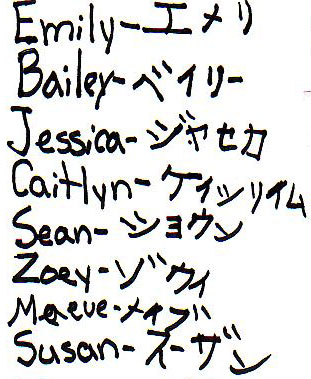 Emily-エメリ
Bailey-ベイリー
Jessica-ジャセカ
Caitlyn-ケイツリイム
Sean-ショウン
Zoey-ゾウィ
Maeve-メイブ
Susan-スーザン